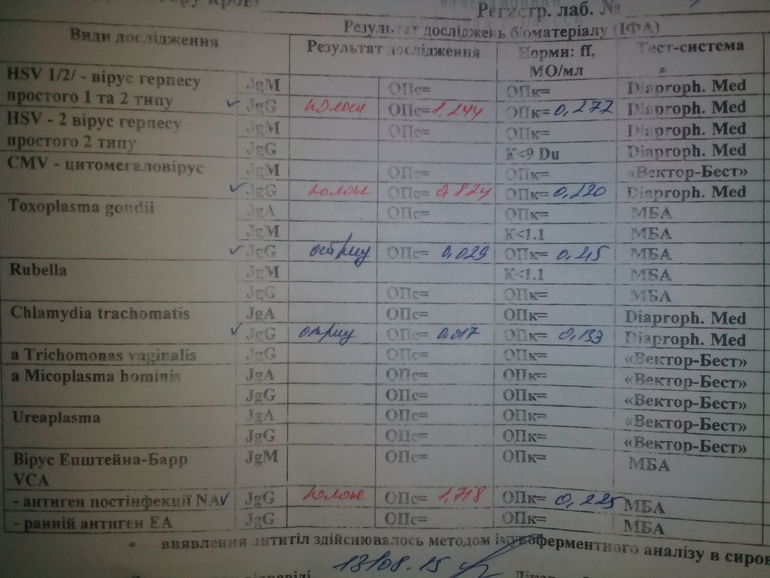 Регистр. лаб. №
Результат досліджень біоматеріалу (ІФА)
Види дослідження Результат дослідження Норми: ff, МО/мл Тест-система
HSV 1/2/ - вірус герпесу простого 1 та 2 типу JgM ОПс= ОПк= Diaproph. Med
✓ JgG ОПс= 1,244 ОПк= 0,277 Diaproph. Med
HSV - 2 вірус герпесу простого 2 типу JgM ОПс= ОПк= Diaproph. Med
JgG К<9 Du Diaproph. Med
CMV - цитомегаловірус JgM ОПс= ОПк= «Вектор-Бест»
✓ JgG ОПс= 0,824 ОПк= 0,220 Diaproph. Med
Toxoplasma gondii JgA ОПс= ОПк= МБА
JgM К<1.1 МБА
✓ JgG ОПс= 0,029 ОПк= 0,215 МБА
Rubella JgM К<1.1 МБА
JgG ОПс= ОПк= МБА
Chlamydia trachomatis JgA ОПс= ОПк= Diaproph. Med
✓ JgG ОПс= 0,017 ОПк= 0,193 Diaproph. Med
a Trichomonas vaginalis JgG ОПс= ОПк= «Вектор-Бест»
a Micoplasma hominis JgA ОПс= ОПк= «Вектор-Бест»
JgG ОПс= ОПк= «Вектор-Бест»
Ureaplasma JgA ОПс= ОПк= «Вектор-Бест»
JgG ОПс= ОПк= «Вектор-Бест»
Вірус Епштейна-Барр VCA JgM ОПс= ОПк= МБА
- антиген постінфекції NA ✓ JgG ОПс= 1,718 ОПк= 0,225 МБА
- ранній антиген EA JgG ОПс= ОПк= МБА
виявлення антитіл здійснювалось методом імуноферментного аналізу в сиров
18/08.15